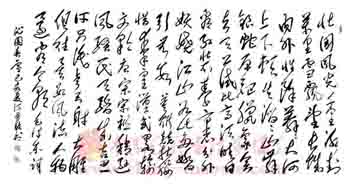 北国风光千里冰封
万里雪飘望长城
内外惟余莽莽大河
上下顿失滔滔山舞
银蛇原驰蜡象欲与
天公试比高须晴日
看红装素裹分外
妖娆江山如此多娇
引无数英雄竞折腰
惜秦皇汉武略输
文采唐宗宋祖稍逊
风骚一代天骄成吉思
汗只识弯弓射大雕
俱往矣数风流人物
还看今朝毛泽东词
沁园春雪